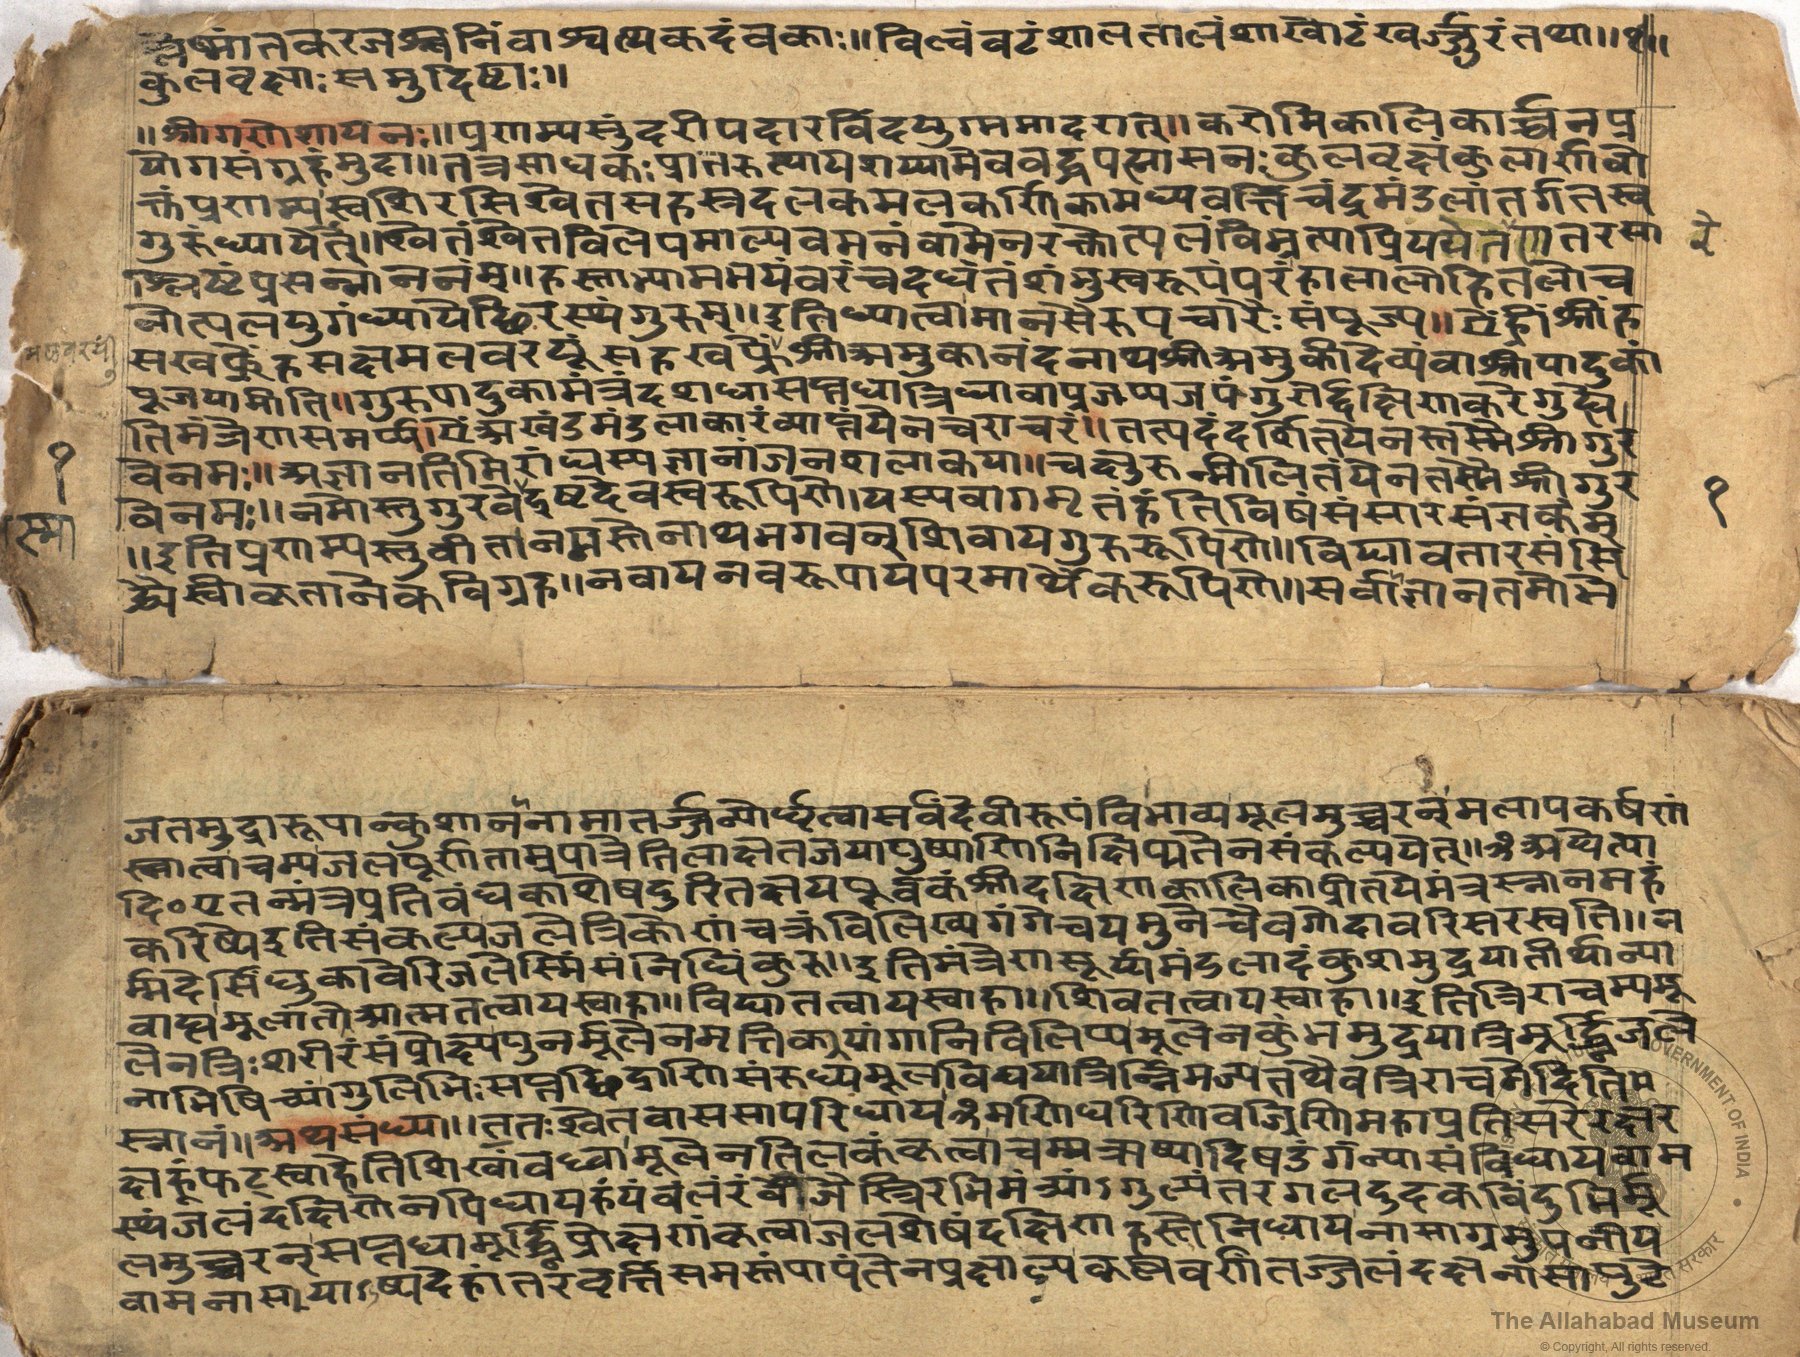 श्लेष्मांतकरजञ्जनिंवाश्वत्थकदंवकाः॥विल्वंवटंशालतालंशाखोटंखर्ज्जुरंतथा॥१॥
कुलवृक्षाःसमुदिष्टाः॥
॥श्रीगणेशायनमः॥प्रणम्यसुंदरीपदारविंदयुग्ममादरात्॥करोमिकालिकार्च्चनप्र
योगसंग्रहंमुदा॥तत्रसाधकःप्रातरुत्थायशय्यामेववद्धपद्मासनःकुलवृक्षंकुलार्णवो
क्तंप्रणम्यस्वशिरसिश्वेतसहस्रदलकमलकर्णिकामध्यवर्त्तिचंद्रमंडलांतर्गतस्व
गुरुंध्यायेत्॥श्वेतंश्वेतविलेपमाल्यवसनंवामेनरक्तोत्पलंविभ्रत्याप्रियये तरसा
श्लिष्टंप्रसन्नाननंम्॥हस्ताभ्यामभयंवरंचदधतंशंभुस्वरूपंपरंहालालोहितलोच
नोत्पलयुगंध्यायेच्छिरस्थंगुरुम्॥इतिध्यात्वामानसैरुपचारैःसंपूज्य॥ऐंह्रींश्रींह
सखफ्रेंहसक्षमलवरयूंसहखफ्रेंश्रीअमुकानंदनाथश्रीअमुकीदेव्यंवाश्रीपादुकां
पूजयामीति॥गुरुपादुकामंत्रंदशधासप्तधात्रिधावाप्रजप्यजपंगुरोर्द्दक्षिणकरेगुह्ये
तिमंत्रेणसमर्प्य।ऐंअखंडमंडलाकारंव्याप्तंयेनचराचरं॥तत्पदंदर्शितंयेनतस्मैश्रीगुर
वेनमः॥अज्ञानतिमिरांधस्यज्ञानांजनशलाकया॥चक्षुरुन्मीलितंयेनतस्मैश्रीगुर
वेनमः॥नमोस्तुगुरवेइष्टदेवस्वरूपिणे।यस्यवागमृतंहंतिविषंसंसारसंज्ञकंम्
॥इतिप्रणम्यस्तुवीतानमस्तेनाथभगवन्शिवायगुरुरूपिणे॥विद्यावतारसंसि
द्ध्यैस्वीकृतानेकविग्रह॥नवायनवरूपायपरमार्थैकरूपिणे॥सर्वाज्ञानतमोभे
१
स्मा
१
जतमुद्रारूपान्कुशाननामातर्ज्जन्योर्घृत्वासर्वंदेवीरूपंविभाव्यमूलमुच्चरन्मलापकर्षणं
स्नात्वाचम्यजलपूर्णताम्रपात्रेतिलाक्षतजयापुष्पाणिनिक्षिप्यतेनसंकल्पयेत्॥ॐअद्येत्या
दि०एतन्मंत्रप्रतिवंधकाशेषदुरितक्षयपूर्वकंश्रीदक्षिणकालिकाप्रीतयेमंत्रस्नानमहं
करिष्येइतिसंकल्प्यजलेत्रिकोणंचक्रंविलिख्यगंगेचयमुनेचैवगोदावरिसरस्वति॥न
र्म्मदेसिंधुकावेरिजलेस्मिंसंनिधिंकुरु॥इतिमंत्रेणसूर्य्यमंडलादंकुशमुद्रयातीर्थान्या
वाह्यमूलांतेआत्मतत्वायस्वाहा॥विद्यातत्वायस्वाहा॥शिवतत्वायस्वाहा॥इतित्रिराचम्यमू
लेनत्रिःशरीरंसंप्रोक्ष्यपुनर्मूलेनमृत्तिकयांगानिविलिप्यमूलेनकुंभमुद्रयात्रिमूर्द्ध्निजले
नाभिषिच्यांगुलिभिःसप्तछिद्राणिसंरुध्यमूलविद्ययात्रिर्न्निमज्यतथैवत्रिराचमेदिति
स्नानं॥अथसंध्या॥ततःश्वेतवाससीपरिधायॐमणिधरिणिवज्रिणिमहाप्रतिसरेरक्षर
क्षहूंफट्स्वाहेतिशिखांवध्वामूलेनतिलकंकृत्वाचम्यऋष्यादिषडंगंन्यासंविधायवाम
स्थंजलंदक्षिणेनपिधायहंयंवंलंरंवीजैस्त्रिरभिमंत्र्यांऽगुल्यंतरगलदुदकविंदुभिर्मू
लमुच्चरन्सप्तधामूर्द्ध्निप्रोक्षणंकृत्वाजलशेषंदक्षिणहस्तेनिधायनासाग्रमुपनीय
वामनासयाऽऽकृष्यदेहांतरवृत्तिसमस्तंपापंतेनप्रक्षाल्यकृष्णवर्णंतज्जलंदक्षनासापुटे
The Allahabad Museum
© Copyright, All rights reserved.